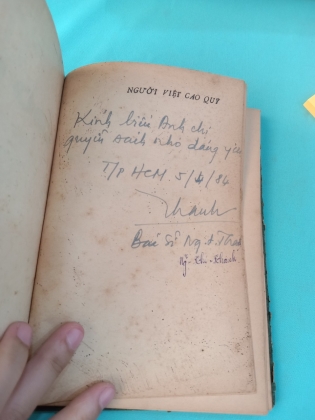 NGƯỜI VIỆT CAO QUÝ
Kính biếu Anh chị
quyển sách nhỏ đáng yêu
T/P HCM 5/4/84
Thanh
Bác Sĩ Ng.